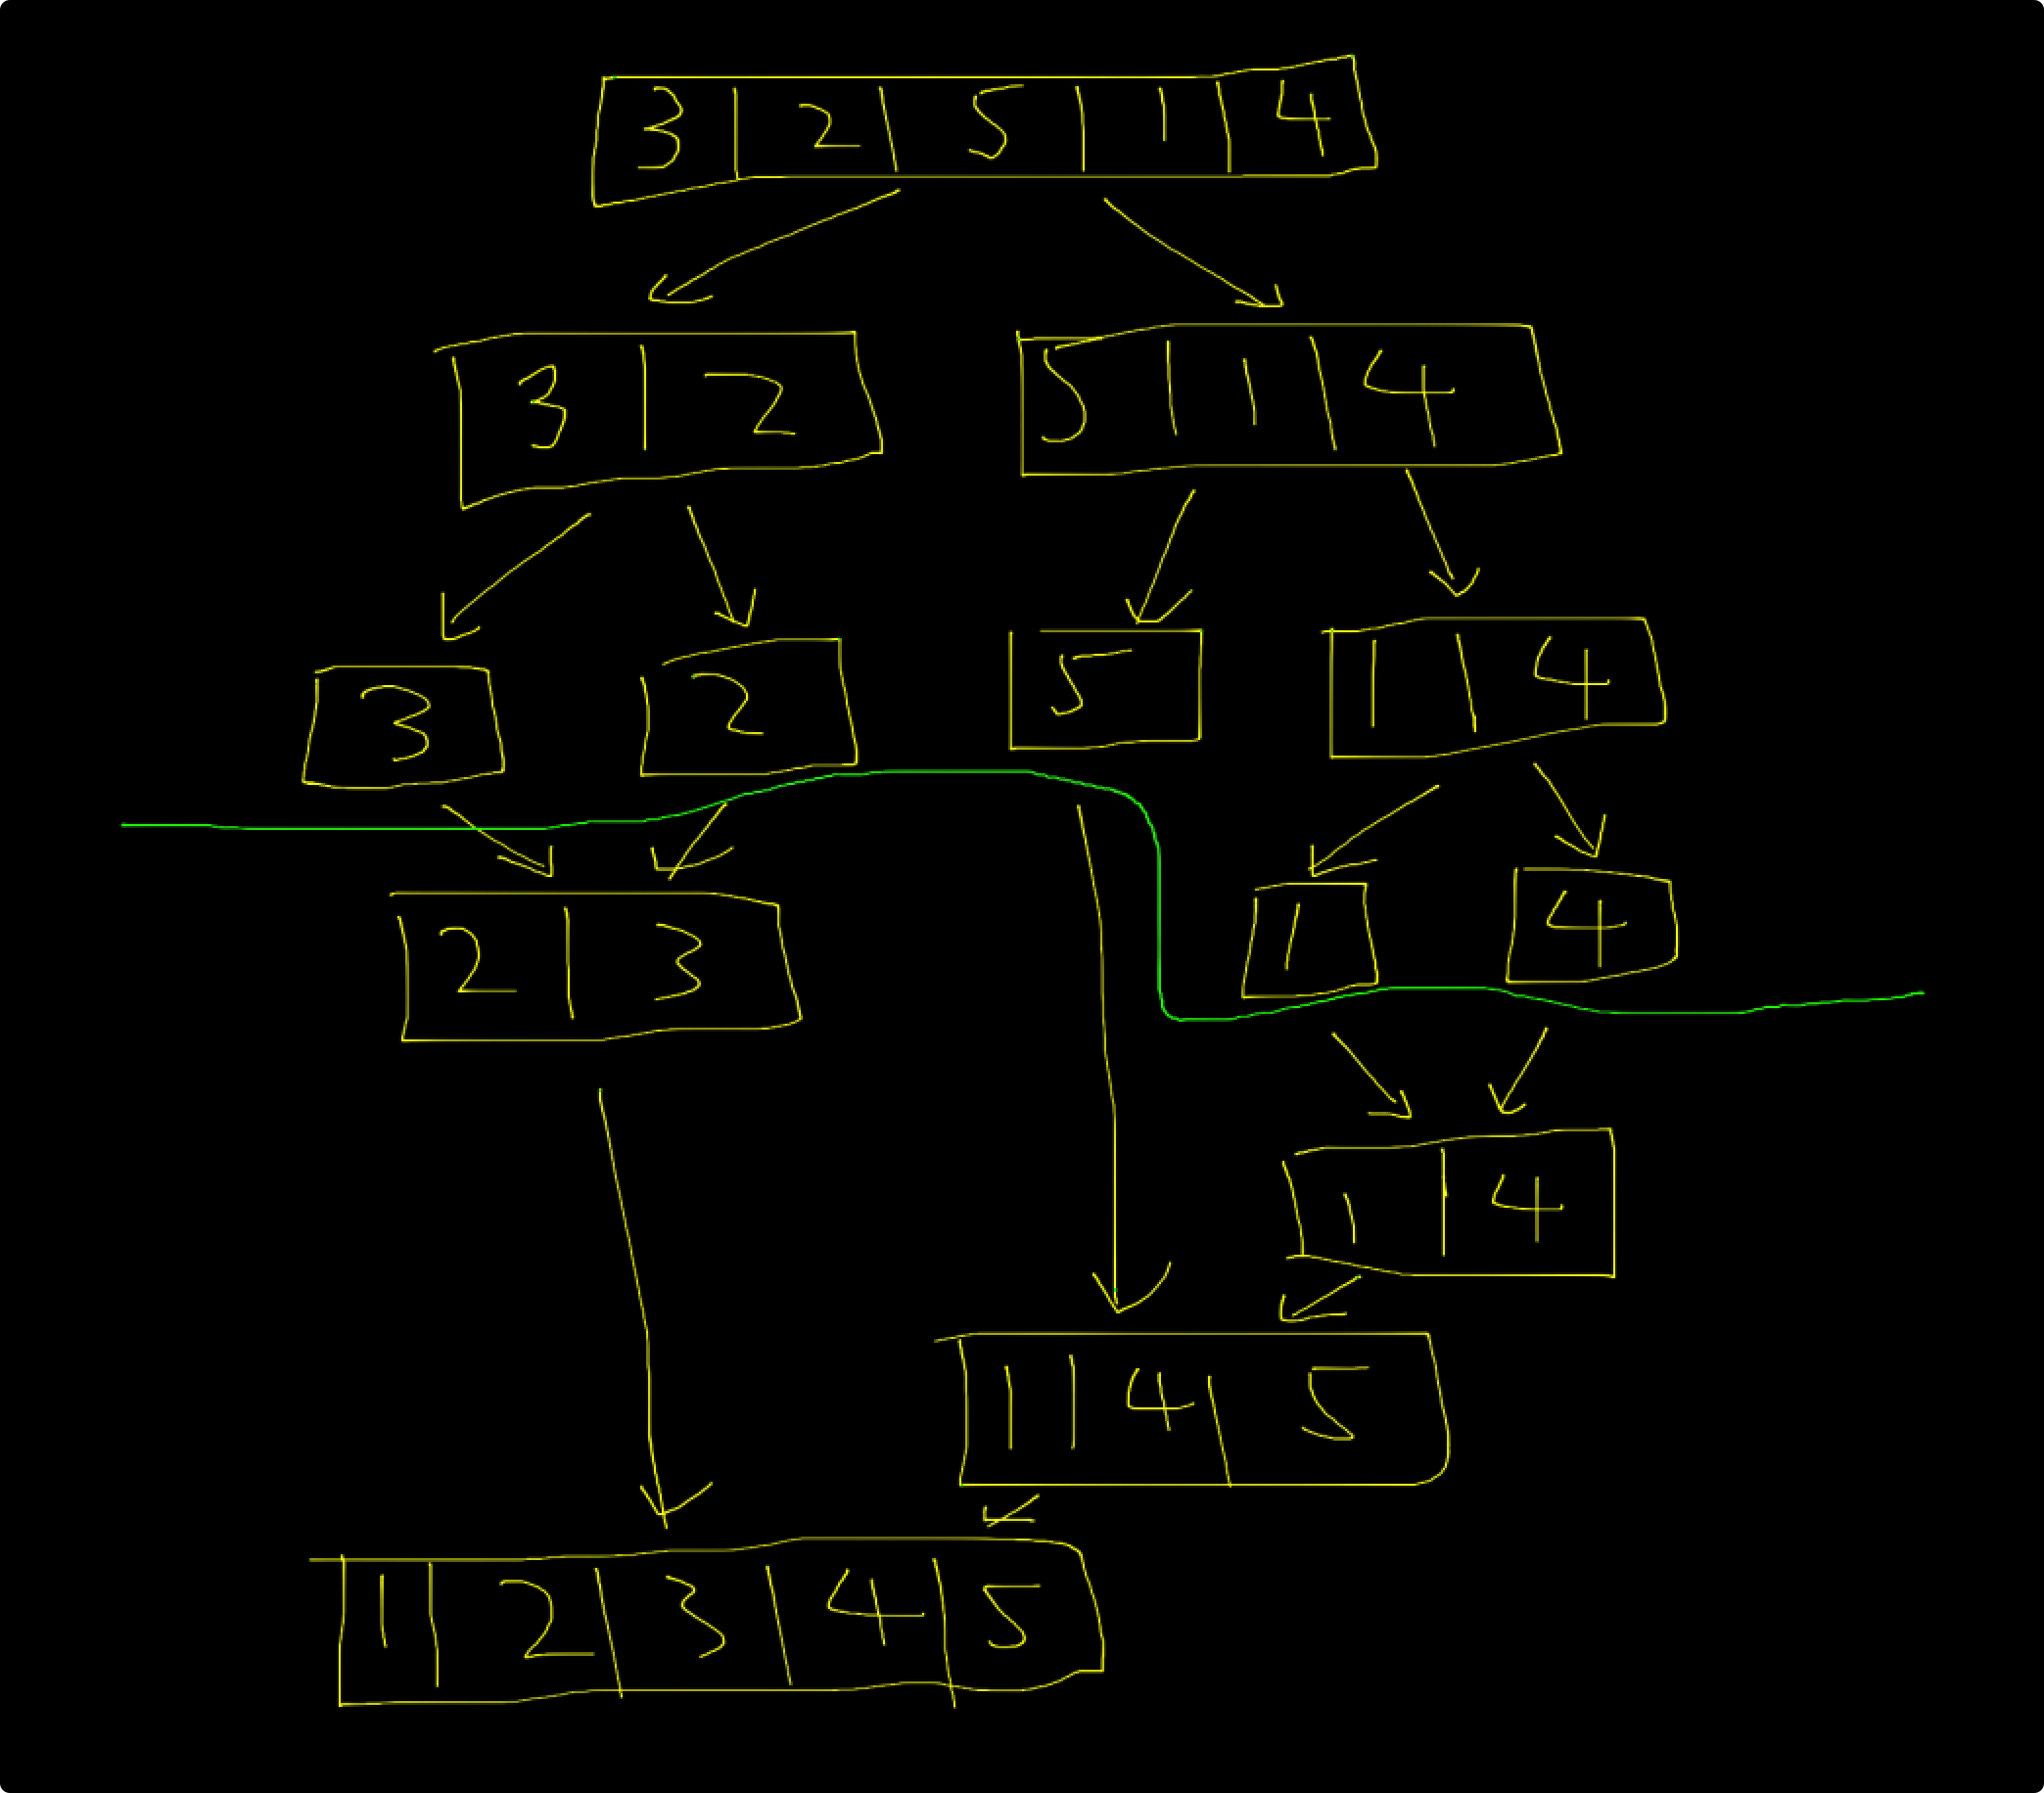 3 2 5 1 4
3 2 5 1 4
3 2 5 1 4
2 3 1 4
1 4
1 4 5
1 2 3 4 5